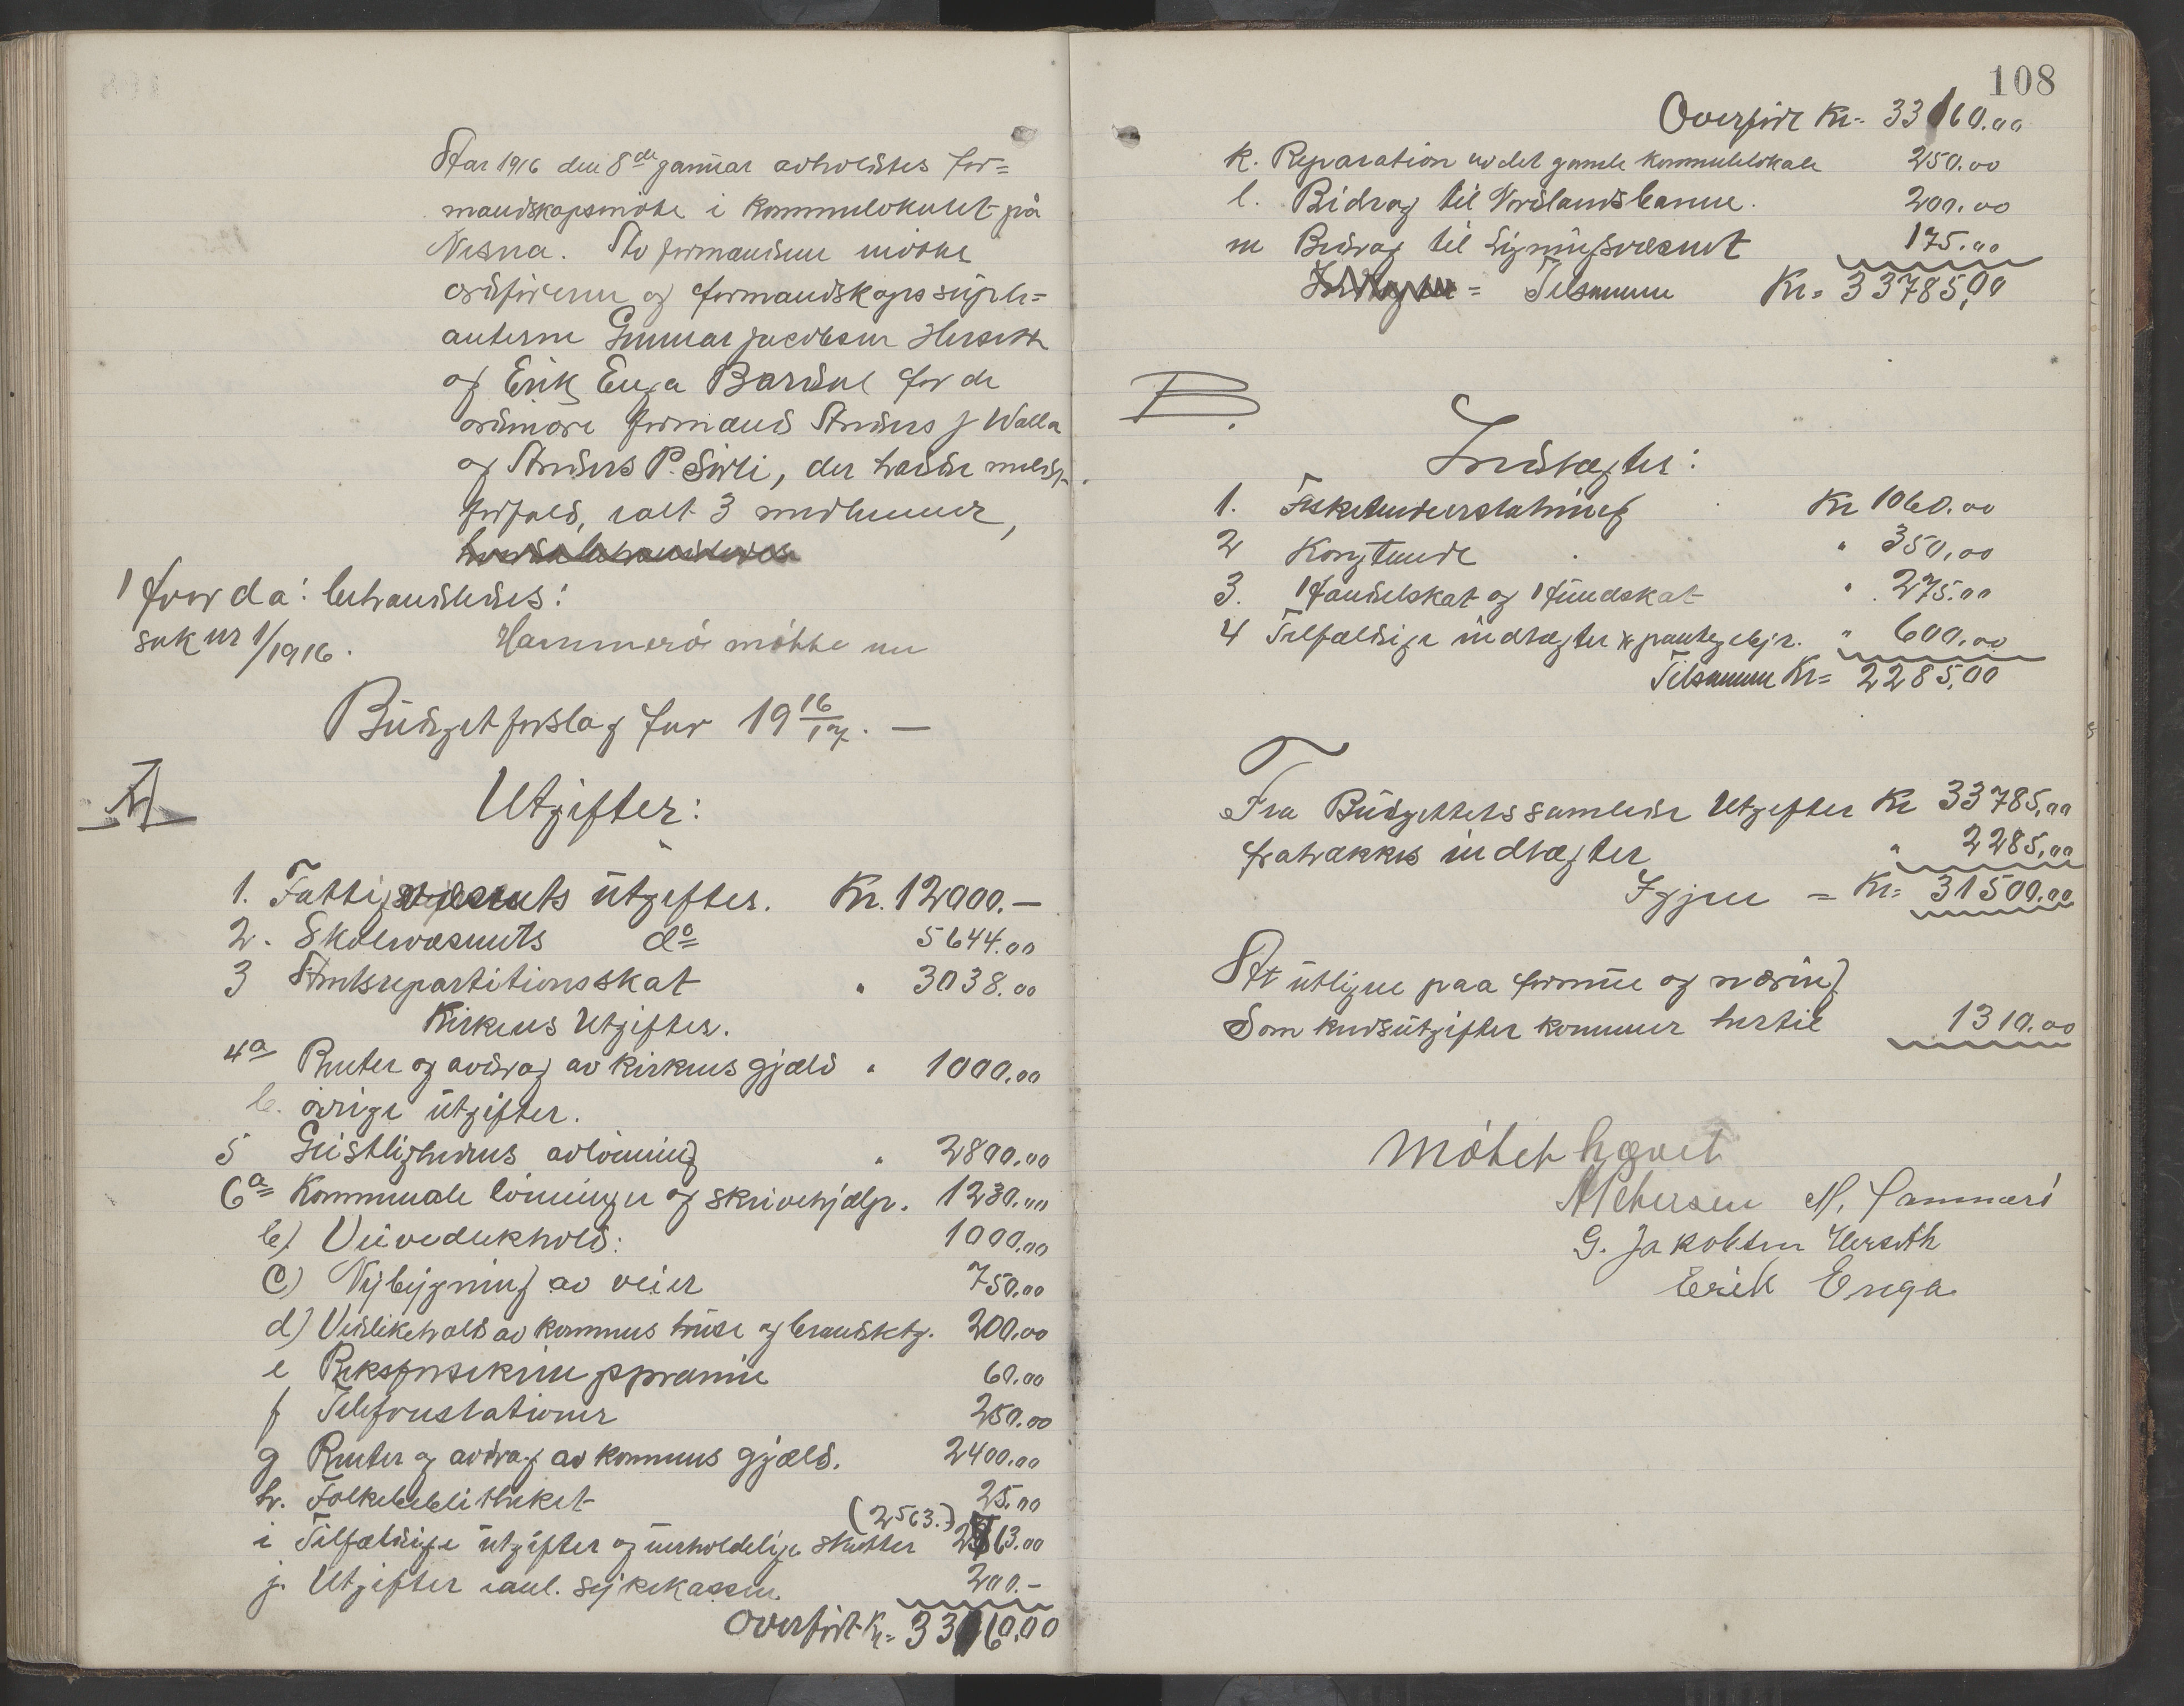 Aar 1916 den 8de januar avholdtes for=
mandskapsmøte i kommunelokalet på
Nesna. Av formændene møtte
ordføreren og formandskapssuple=
anterne Gunnar Jacobsen Herseth
og Erik Enga Bardal for de
ordinære formænd Anders J Walla
og Anders P. Sørli, der hadde meldt
forfald, ialt 3 medlemmer,
1 hvor da: behandledes:
sak nr 1/1916. Hammerø møtte nu
Budgetforslag for 19 16/17. —
A
Utgifter:
1. Fattigvæsenets utgifter. Kr. 12000.—
2. Skolevæsenets do 5644.00
3 Amtsrepartitionsskat " 3038.00
Kirkens Utgifter.
4a Renter og avdrag av kirkens gjæld " 1000.00
b. øvrige utgifter.
5 Geistlighedens avlønning " 2800.00
6a Kommunale lønninger og skrivehjælp. 1230.00
b) Veivedlikehold: 1000.00
c) Nybygning av veier 750.00
d) Vedlikehold av kommunens huse og brandsktg. 200.00
e Riksforsikringspræmie 60.00
f Telefonstationer 250.00
g Renter og avdrag av kommunens gjæld. 2400.00
h. Folkebiblitheket 25.00
(2563.)
i Tilfældige utgifter og uerholdelige skatter 2563.00
j. Utgifter ianl. sykekassen 200.—
Overført Kr= 33160.00
108
Overført Kr= 33160.00
k. Reparation av det gamle kommunelokale 250.00
l. Bidrag til Nordlandsbanen. 200.00
m Bidrag til Ligningsvæsenet 175.00
= Tilsammen Kr= 33785,00
B.
Indtægter:
1. Fisketiendeerstatning Kr 1060.00
2 Kongtiende " 350.00
3. Handelskat og Hundskat " 275.00
4 Tilfældige indtægter & pantegebyr. " 600.00
Tilsammen Kr= 2285,00
Fra Budgettets samlede Utgifter Kr 33785,00
fratrækkes indtægter " 2285,00
Igjen = Kr= 31500.00
At utligne paa formue og næring
Som kredsutgifter kommer hertil 1310.00
Møtet hævet
A Petersen M. Hammerö
G. Jakobsen Herseth
Erik Enga